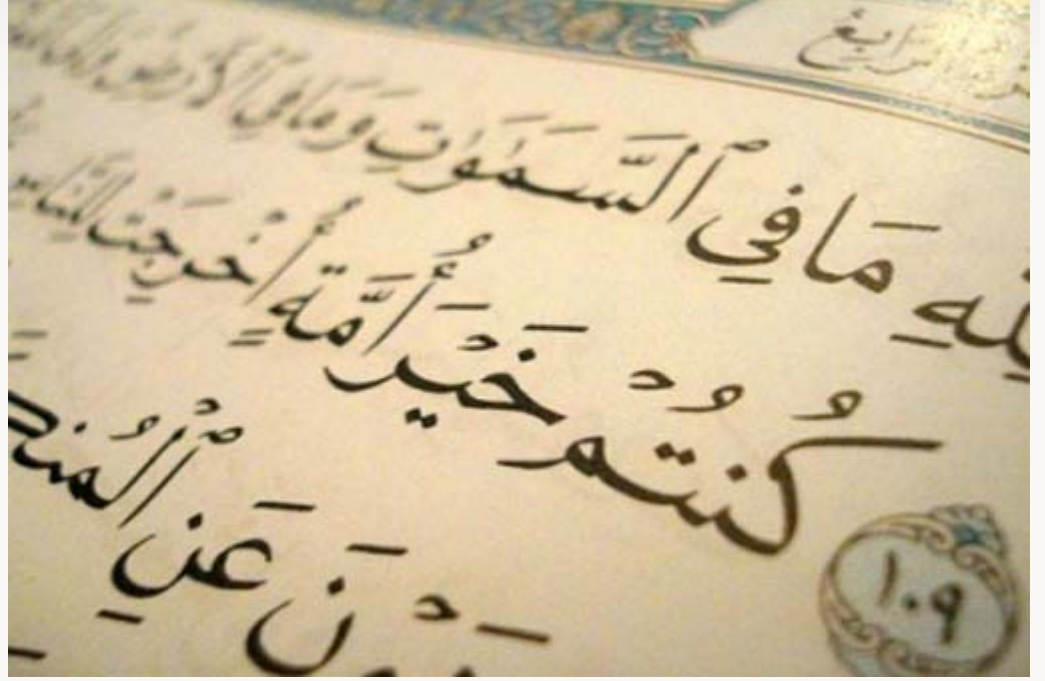 الرابع
لِلَّهِ مَا فِي ٱلسَّمَٰوَٰتِ وَمَا فِي ٱلْأَرْضِ وَإِلَى
١٠٩ كُنْتُمْ خَيْرَ أُمَّةٍ أُخْرِجَتْ لِلنَّاسِ
عَنِ ٱلْمُنْكَرِ